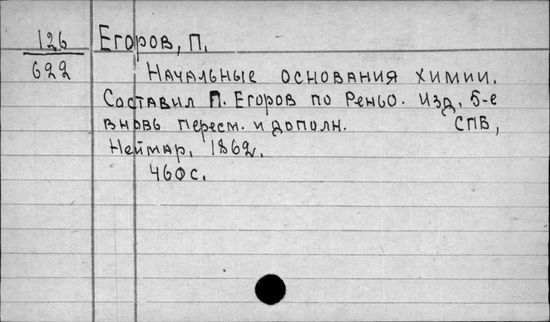 126
622
Егоров, П.
Начальные основания химии.
Составил П. Егоров по Реньо. Изд. 5-е
вновь пересм. и дополн. СПБ,
Неймар, 1862.
460с.